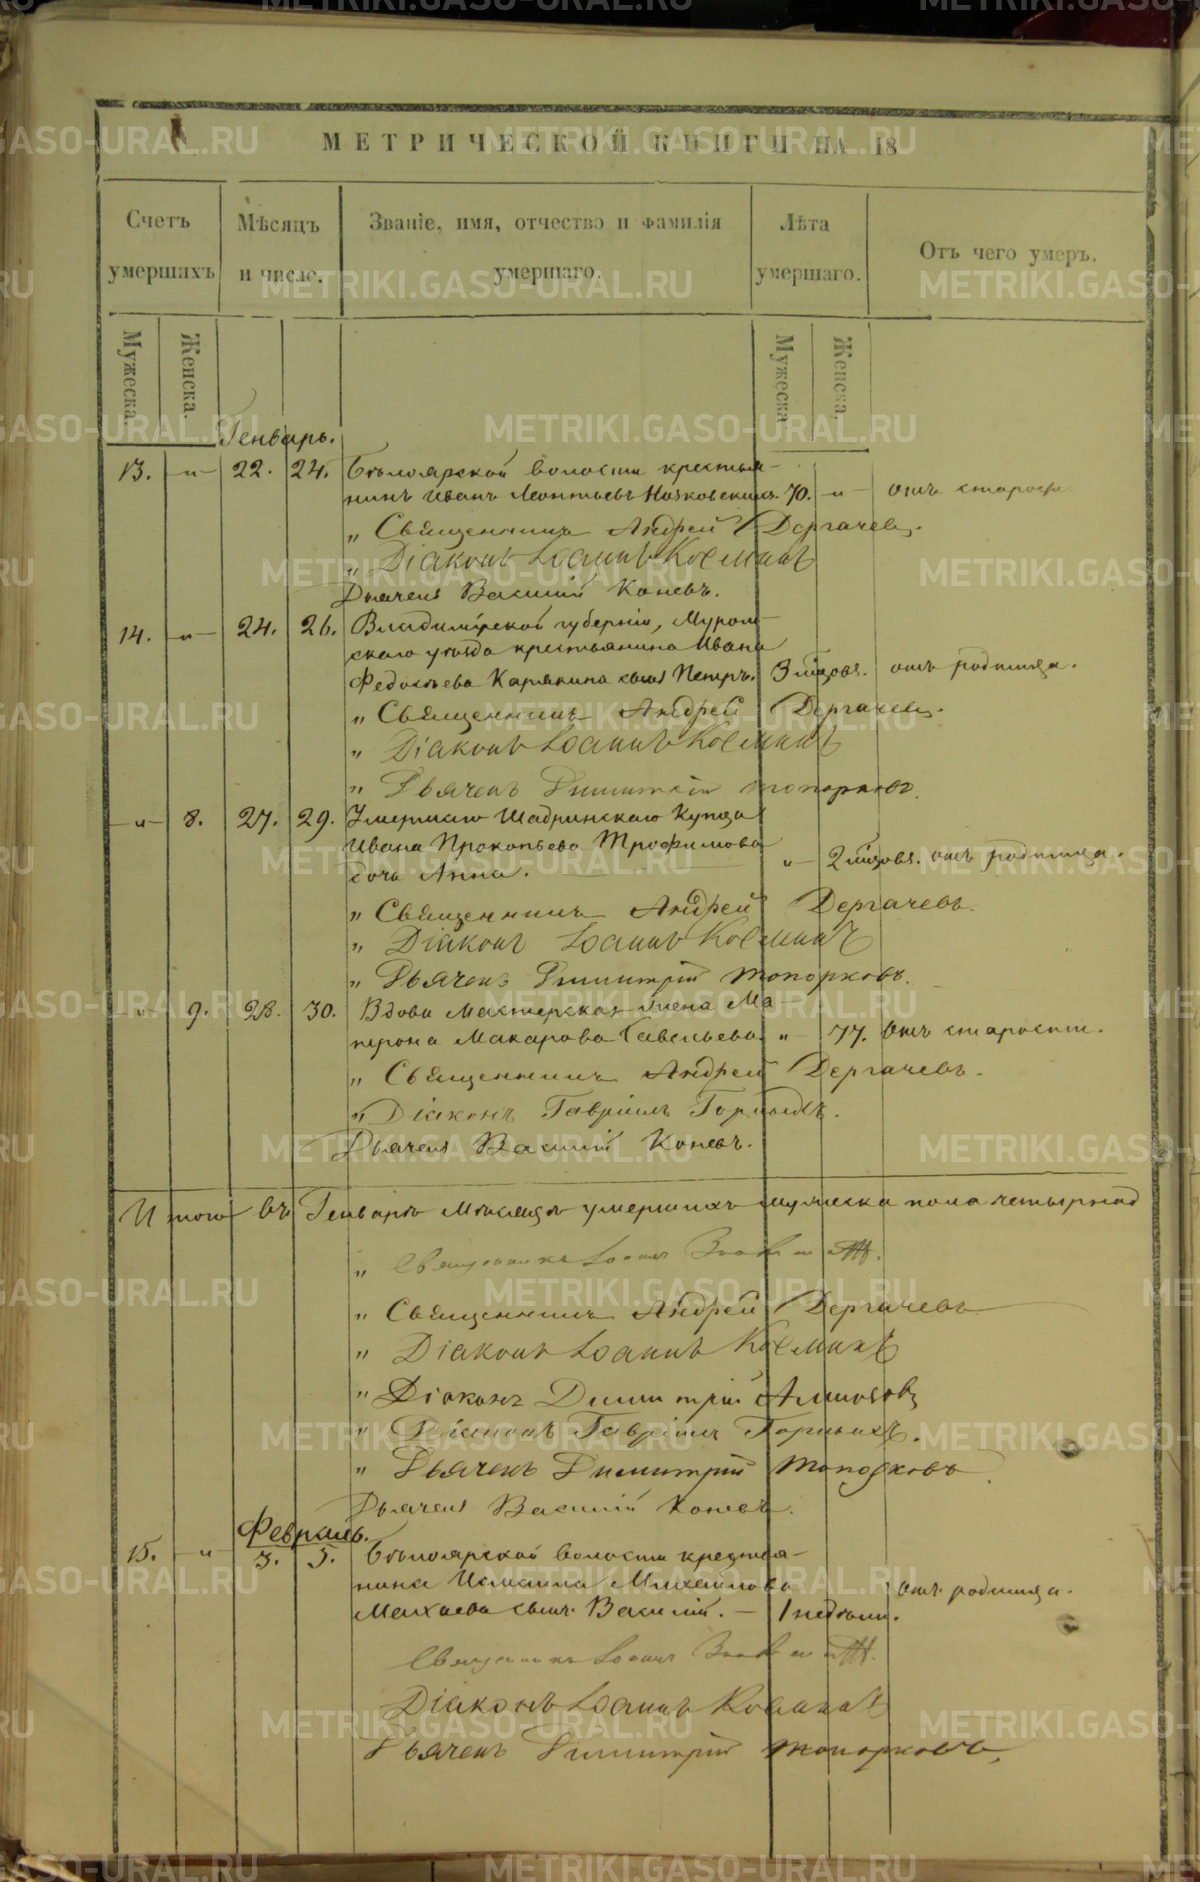 МЕТРИЧЕСКОЙ КНИГИ НА 18
Счетъ умершихъ
Мѣсяцъ и число.
Званіе, имя, отчество и фамилія умершаго.
Лѣта умершаго.
Отъ чего умеръ.
Мужеска. Женска.
Мужеска Женска.
Генварь.
13. „ 22. 24. Бѣлоярской волости крестья-
нинъ Иванъ Леонтьевъ 70. „ отъ старости.
„ Священникъ Андрей Дергачевъ.
„ Діаконъ Іоаннъ Косминъ
Дьячекъ Василій Коневъ.
14. „ 24. 26. Владимірской губерніи, Муром-
скаго уѣзда крестьянина Ивана
Федосѣева Карякина сынъ Петръ. 3 мѣсяцовъ. отъ родимца.
„ Священникъ Андрей Дергачевъ.
„ Діаконъ Іоаннъ Косминъ
„ Дьячекъ Димитрій Топорковъ.
„ 8. 27. 29. Умершаго Шадринскаго Купца
Ивана Прокопьева Трофимова
дочь Анна. „ 2 мѣсяцовъ. отъ родимца.
„ Священникъ Андрей Дергачевъ.
„ Діаконъ Іоаннъ Косминъ
„ Дьячекъ Димитрій Топорковъ.
„ 9. 28. 30. Вдова Мастерская жена Ма-
трона Макарова Савельева „ 77. отъ старости.
„ Священникъ Андрей Дергачевъ.
„ Діаконъ Гавріилъ Горныхъ.
Дьячекъ Василій Коневъ.
Итого въ Генварѣ мѣсяцѣ умершихъ мужеска пола четырнад
„ Священникъ Іоаннъ
„ Священникъ Андрей Дергачевъ
„ Діаконъ Іоаннъ Косминъ
„ Діаконъ Димитрій
„ Діаконъ Гавріилъ Горныхъ.
„ Дьячекъ Димитрій Топорковъ
Дьячекъ Василій Коневъ.
Февраль.
15. „ 3. 5. Бѣлоярской волости крестья-
нина Михайлова
сынъ Василій. 1 недѣли. отъ родимца.
Священникъ Іоаннъ
Діаконъ Іоаннъ Косминъ
Дьячекъ Димитрій Топорковъ.
METRIKI.GASO-URAL.RU